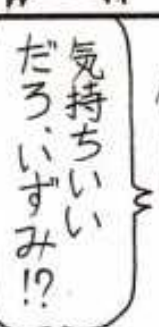 気持ちいい
だろ、いずみ!?